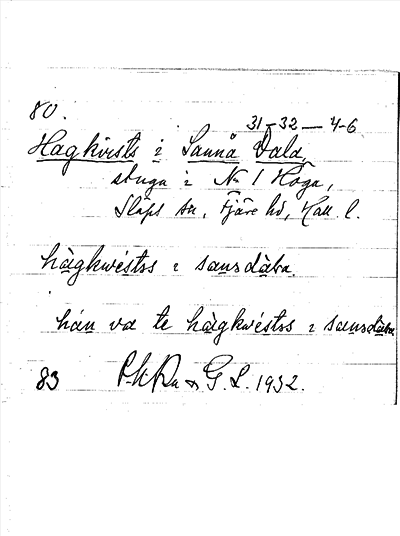 80.
31-32 — 4-6
Hagkvists i Sannå Dala,
stuga i No 1 Höga,
Släps sn, Fjäre hd, Hall. l.
hàgkwéstss i sansdàba.
hán va te hàgkwéstss i sansdàba.
83 P.H.Ra & G.L. 1932.